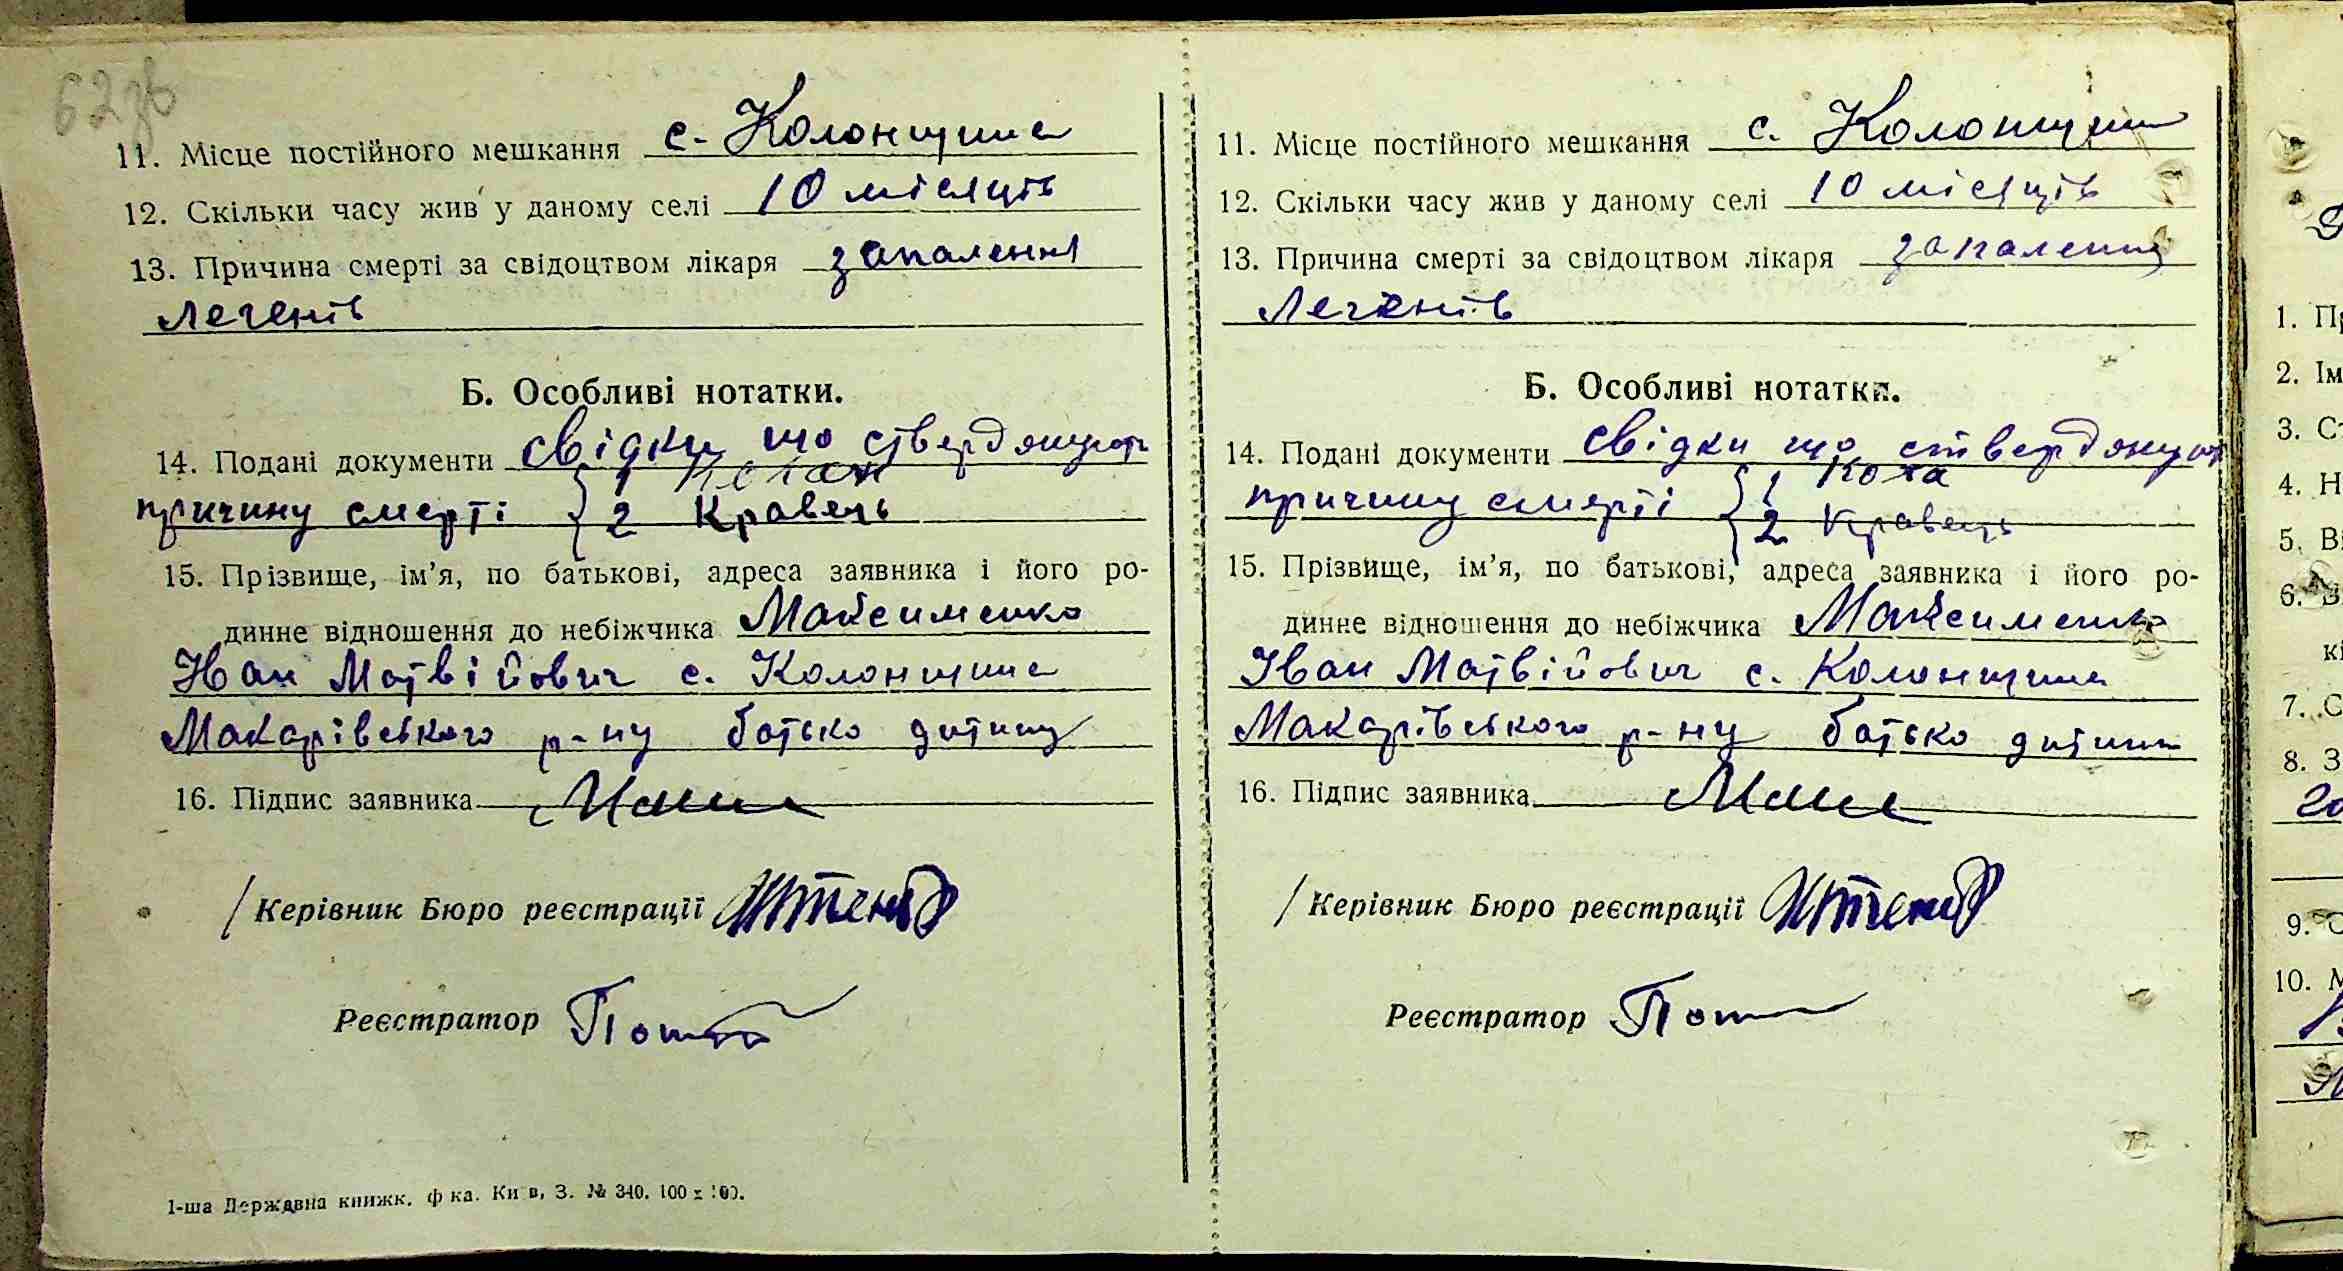 62зв
11. Місце постійного мешкання с. Колонщина
12. Скільки часу жив у даному селі 10 місяців
13. Причина смерті за свідоцтвом лікаря запалення
легенів
Б. Особливі нотатки.
14. Подані документи свідки що стверджують
причину смерті { 1
2 Кравець
15. Прізвище, ім’я, по батькові, адреса заявника і його ро-
динне відношення до небіжчика Максименко
Іван Матвійович с. Колонщина
Макарівського р-ну батько дитини
16. Підпис заявника
Керівник Бюро реєстрації
Реєстратор
1-ша Державна книжк. ф ка. Киів, З. № 340. 100 x 100.
11. Місце постійного мешкання с. Колонщина
12. Скільки часу жив у даному селі 10 місяців
13. Причина смерті за свідоцтвом лікаря запалення
легенів
Б. Особливі нотатки.
14. Подані документи свідки що стверджують
причину смерті { 1 Коха
2 Кравець
15. Прізвище, ім’я, по батькові, адреса заявника і його ро-
динне відношення до небіжчика Максименко
Іван Матвійович с. Колонщина
Макарівського р-ну батько дитини
16. Підпис заявника
Керівник Бюро реєстрації
Реєстратор
1.
2. Ім
3.
4.
5.
6.
7.
8.
9.
10.